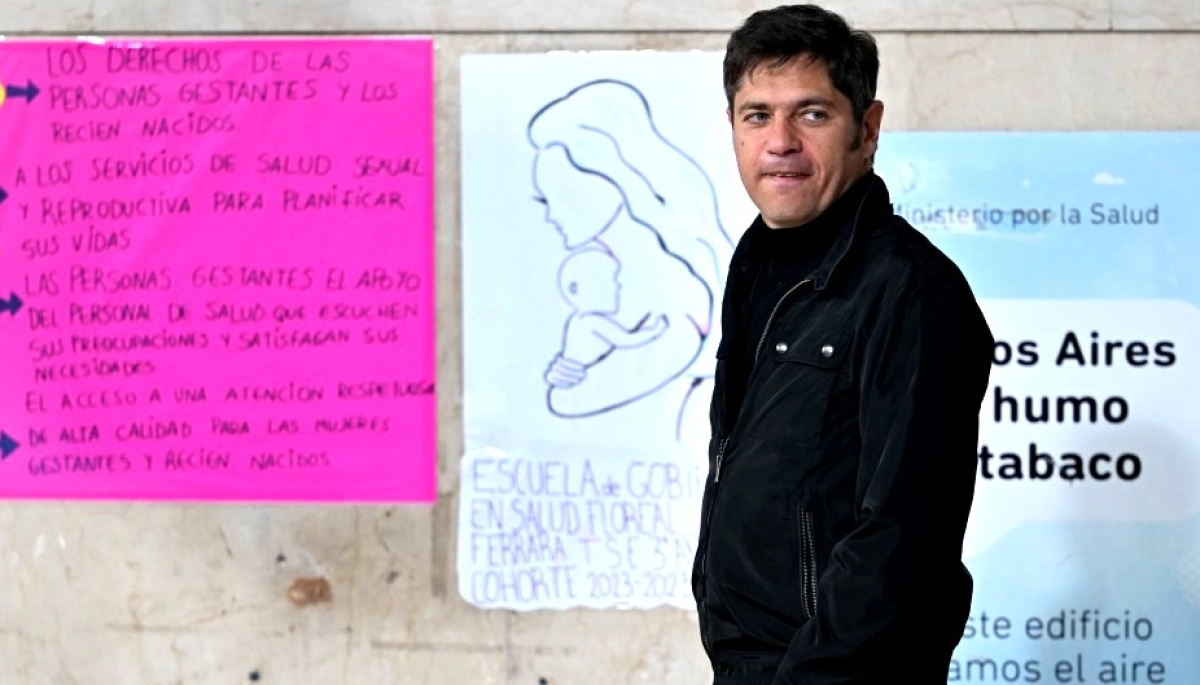 LOS DERECHOS DE LAS
PERSONAS GESTANTES Y LOS
RECIEN NACIDOS.
A LOS SERVICIOS DE SALUD SEXUAL
Y REPRODUCTIVA PARA PLANIFICAR
SUS VIDAS
LAS PERSONAS GESTANTES EL APOYO
DEL PERSONAL DE SALUD QUE ESCUCHEN
SUS PREOCUPACIONES Y SATISFAGAN SUS
NECESIDADES.
EL ACCESO A UNA ATENCIÓN RESPETUOSA
DE ALTA CALIDAD PARA LAS MUJERES
GESTANTES Y RECIEN NACIDOS
ESCUELA de GOBI
EN SALUD FLOREAL
FERRARA T S E 5°A
COHORTE 2023-2025
Ministerio por la Salud
os Aires
humo
tabaco
ste edificio
amos el aire